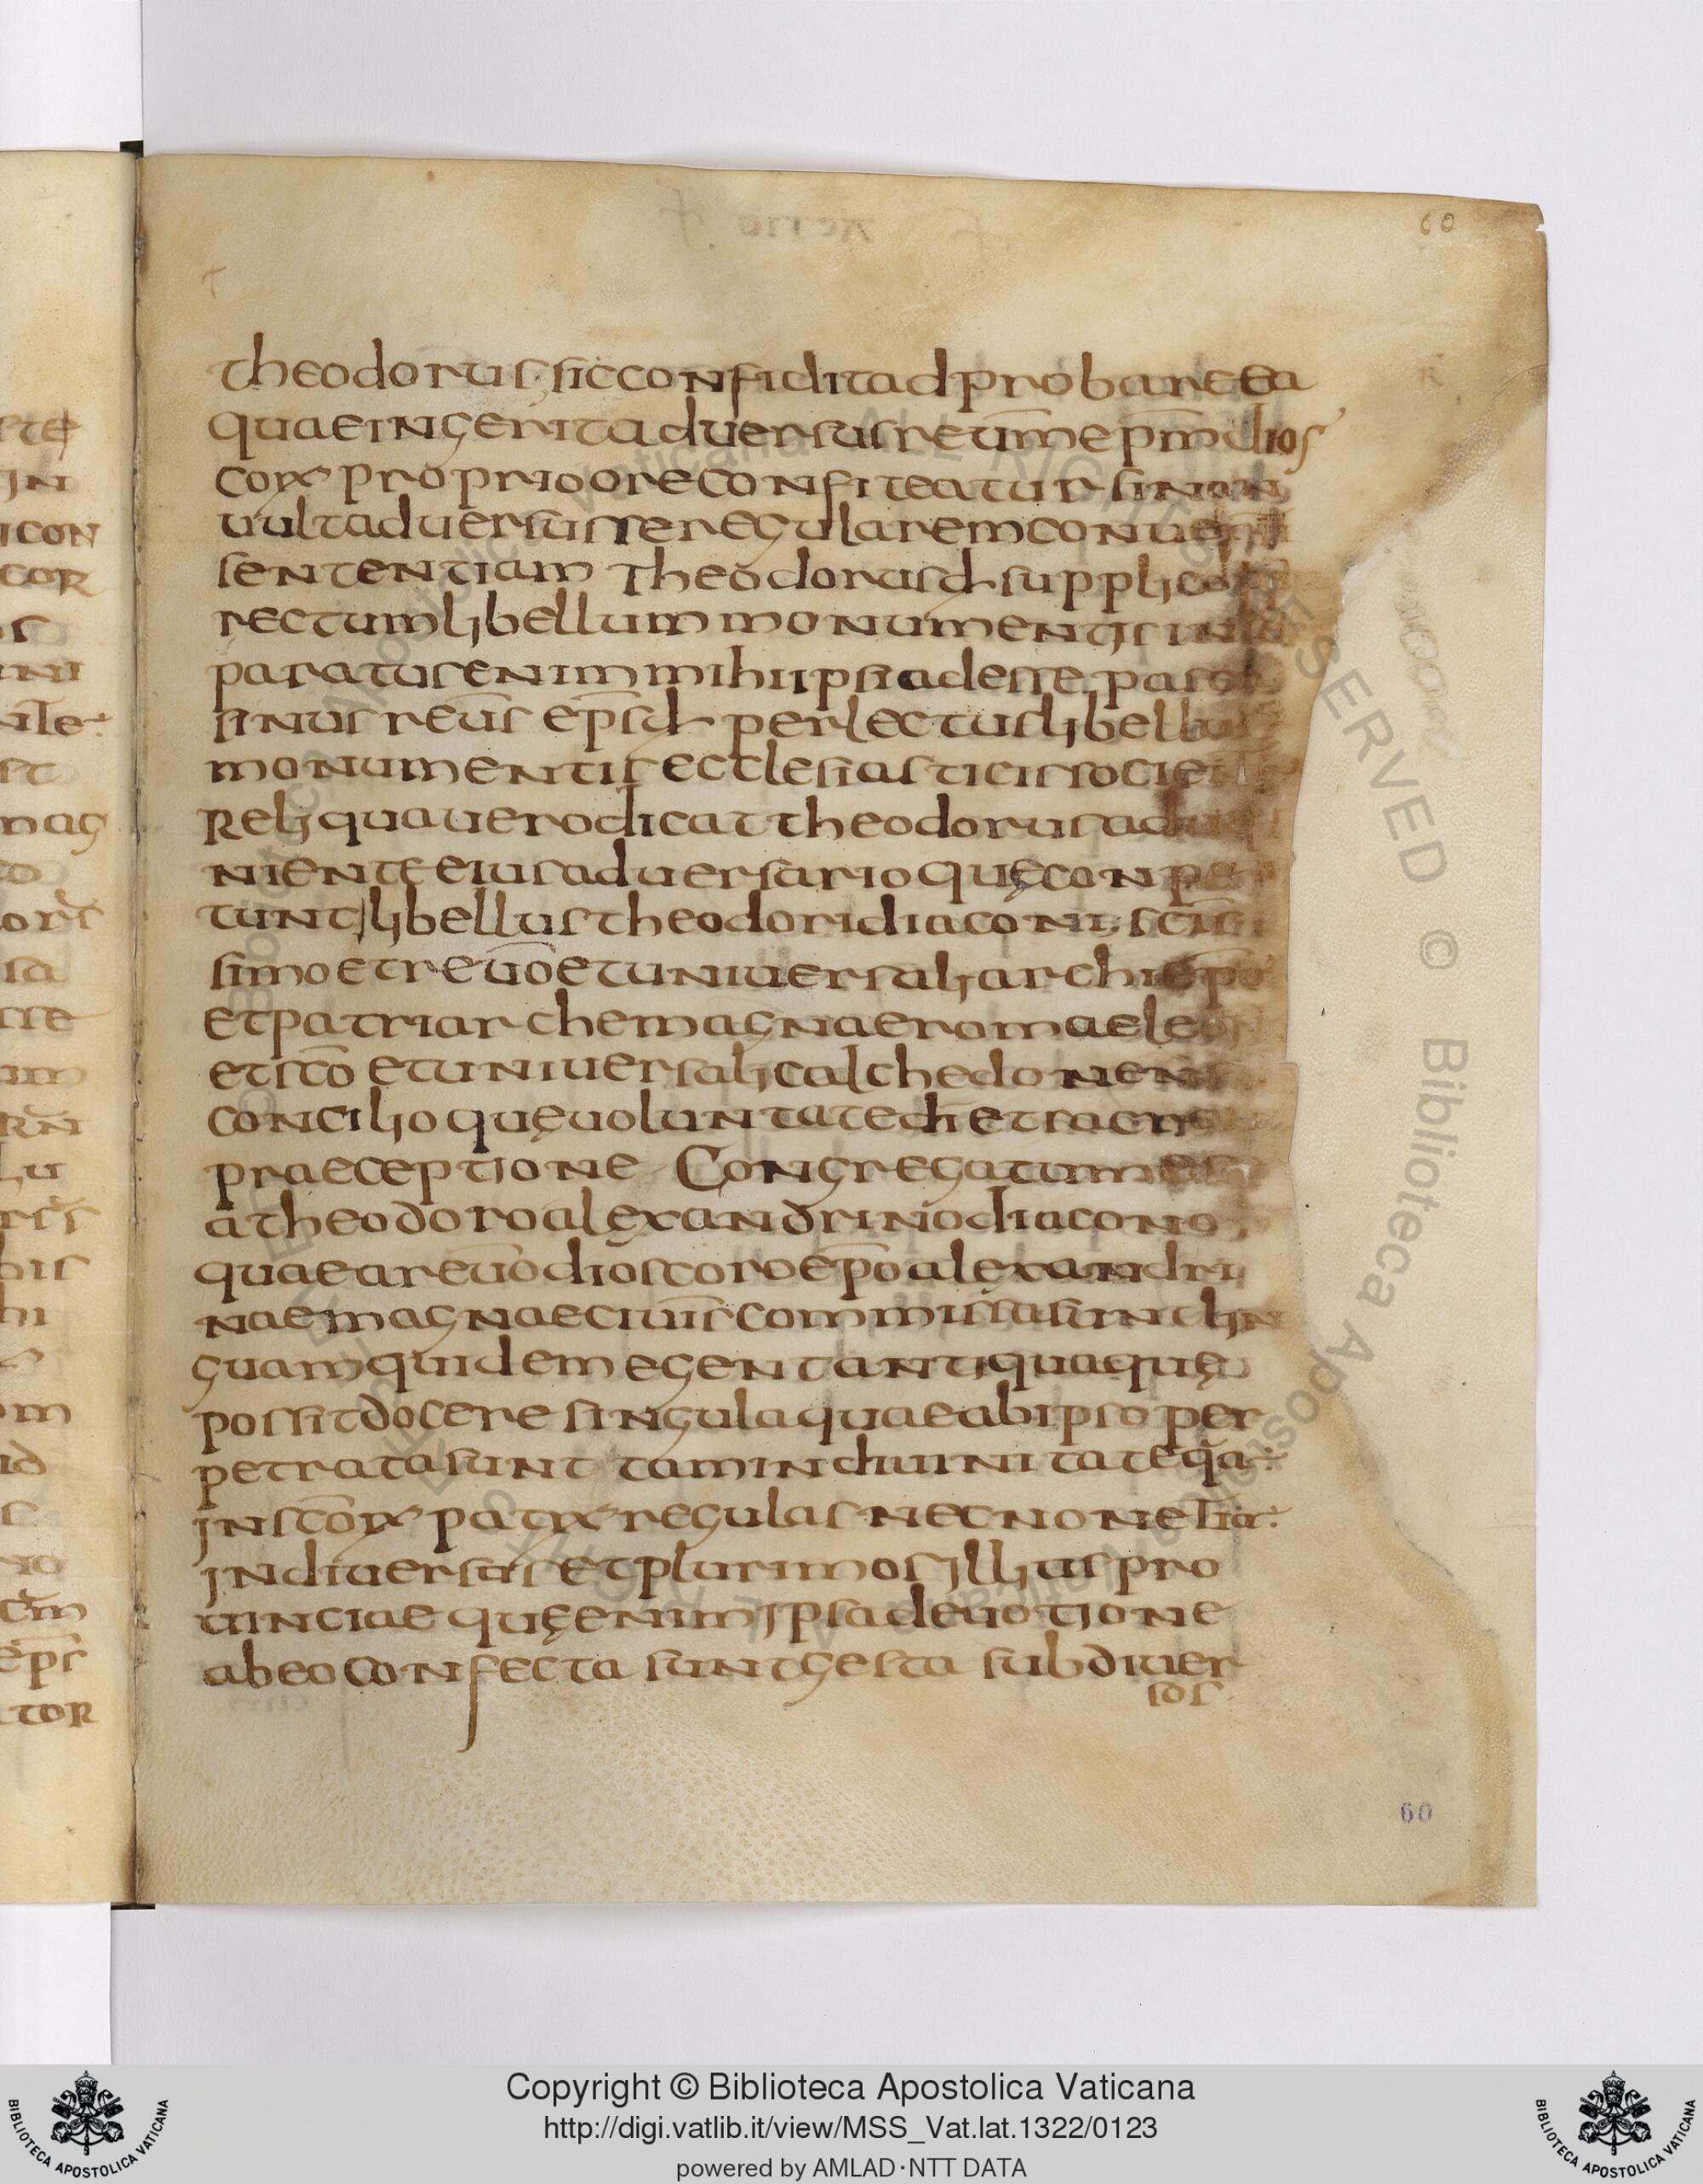 60
theodorus sic confidit ad probare ea
quae ingerit aduersus reum̄ ep̄m dios
corꝝ proprio ore confiteatur si non
uult aduersus se regularem conueni
sententiam Theodorus dꝫ supplico
rectum libellum monumentis
paratus enim mihi ipsi adesse pasca
sinus reūs ep̄s dꝫ perlectus libellus
monumentis ecclesiasticis societ
Reliqua uero dicat theodorus adue
niente eius aduersario quę conpe
tunt libellus theodori diaconi sc̄is
simo et reūo et uniuersali archiep̄o
et patriarche magnae romae leoni
et sc̄o et uniuersali calchedonensi
concilio quę uoluntate d̄i et sacra
praeceptione Congregatum est
a theodoro alexandrino diacono
quae a reūo dioscoro ep̄o alexandri
nae magnae ciuīs commissa sunt lin
guam quidem egent antiqua quę
possit docere singula quae ab ipso per
petrata sunt tam in diuinitate q̄a:
in sc̄orꝝ patrꝝ regulas nec non etia:
in diuersas et plurimos illius pro
uinciae quę enim ipsa deuotione
ab eo confecta sunt gesta sub diuer
sos
60
Copyright © Biblioteca Apostolica Vaticana
http://digi.vatlib.it/view/MSS_Vat.lat.1322/0123
powered by AMLAD·NTT DATA
BIBLIOTECA APOSTOLICA VATICANA
BIBLIOTECA APOSTOLICA VATICANA